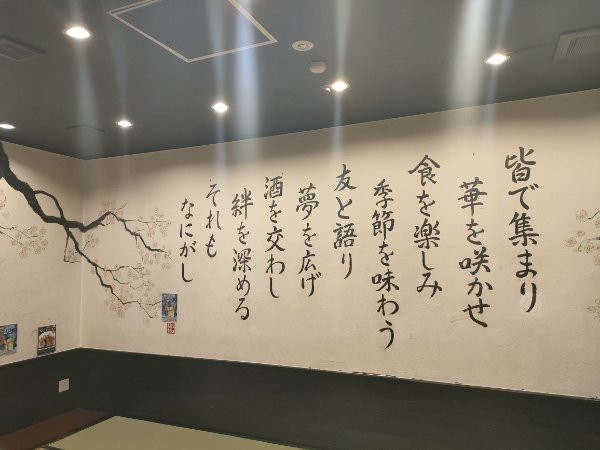 皆で集まり
華を咲かせ
食を楽しみ
季節を味わう
友と語り
夢を広げ
酒を交わし
絆を深める
それも
なにがし